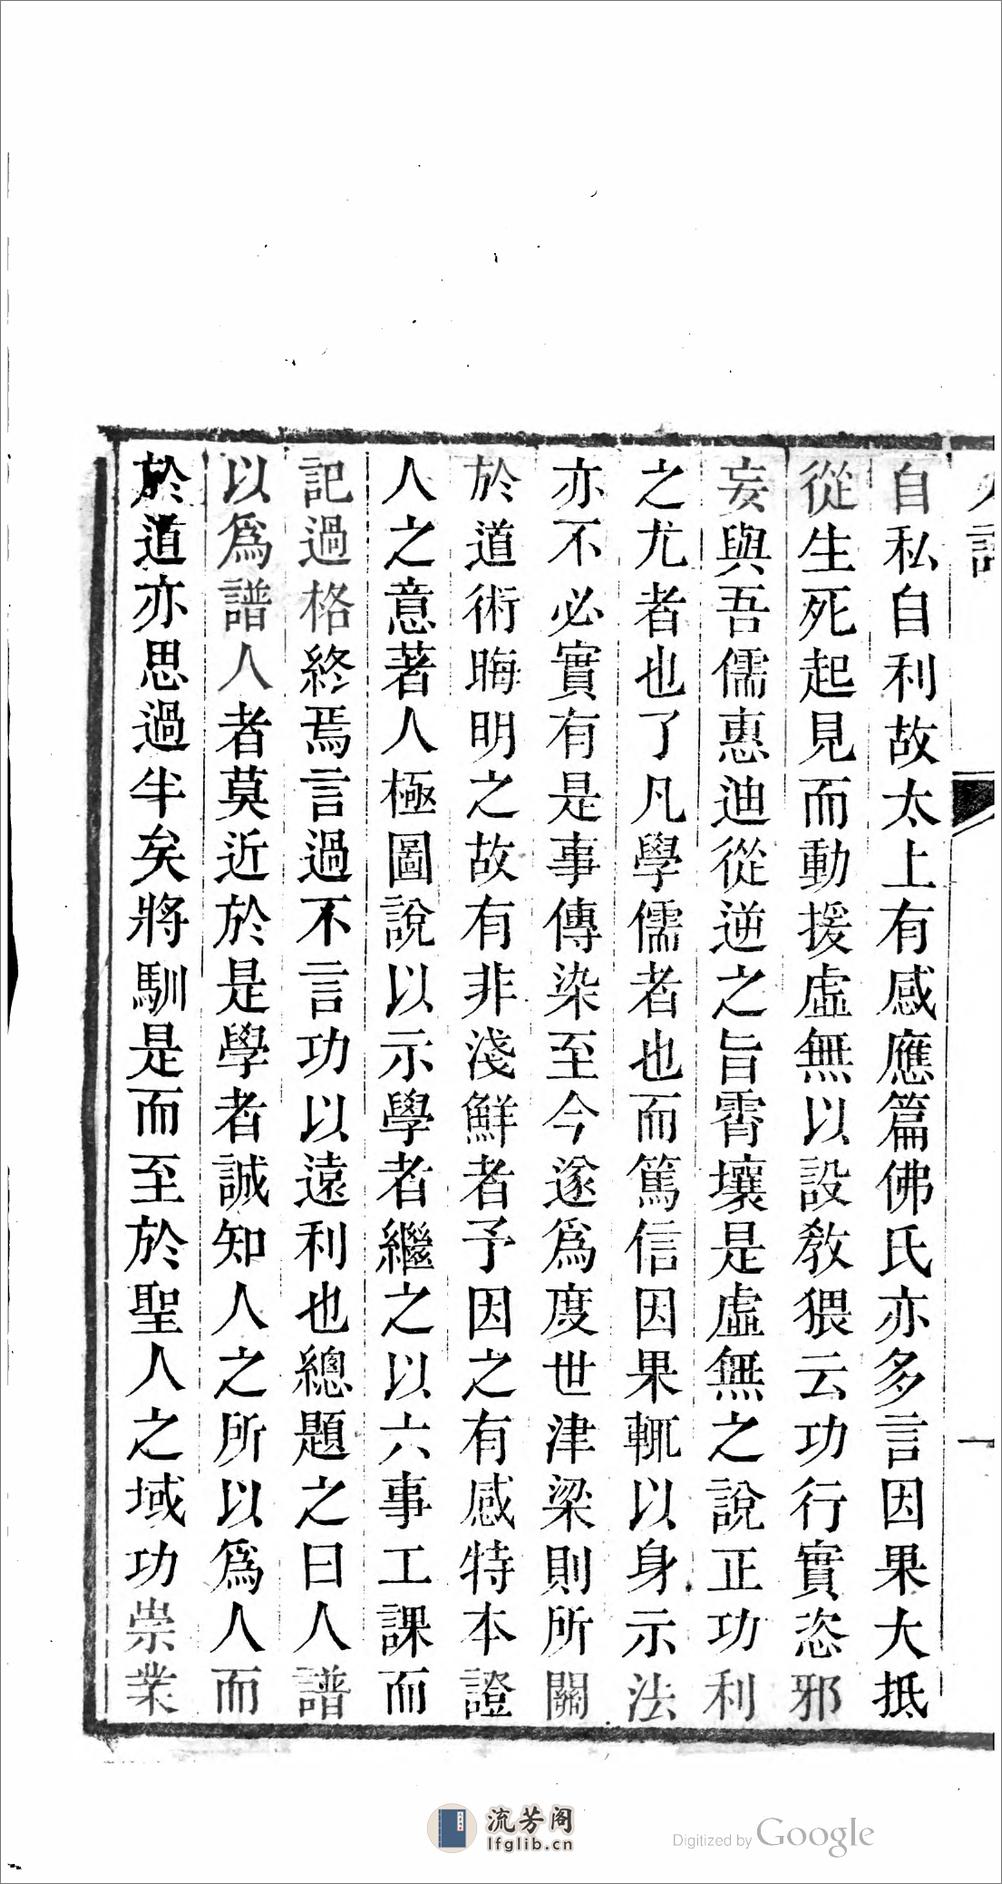 自私自利故太上有感應篇佛氏亦多言因果大抵
從生死起見而動援虛無以設敎猥云功行實恣邪
妄與吾儒惠迪從逆之旨霄壤是虛無之說正功利
之尤者也了凡學儒者也而篤信因果輒以身示法
亦不必實有是事傳染至今遂爲度世津梁則所關
於道術晦明之故有非淺鮮者予因之有感特本證
人之意著人極圖說以示學者繼之以六事工課而
記過格終焉言過不言功以遠利也總題之曰人譜
以爲譜人者莫近於是學者誠知人之所以爲人而
於道亦思過半矣將馴是而至於聖人之域功崇業
流芳阁
lfglib.cn
Digitized by Google